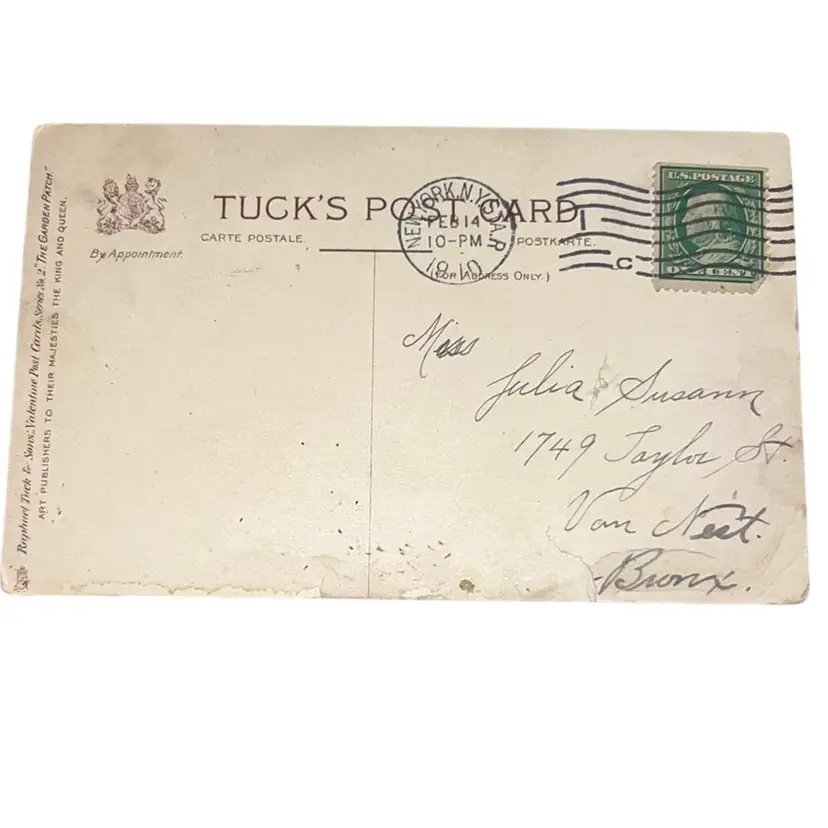 Raphael Tuck & Sons' Valentine Post Cards, Series No. 2. "THE GARDEN PATCH."
ART PUBLISHERS TO THEIR MAJESTIES THE KING AND QUEEN.
By Appointment.
TUCK'S POST CARD
CARTE POSTALE.
POSTKARTE.
(FOR ADDRESS ONLY.)
NEW YORK, N.Y. STA. R
FEB 14
10-PM
1910
1
C
U.S. POSTAGE
ONE CENT
Miss
Julia Susann
1749 Taylor St.
Van Nest.
Bronx.